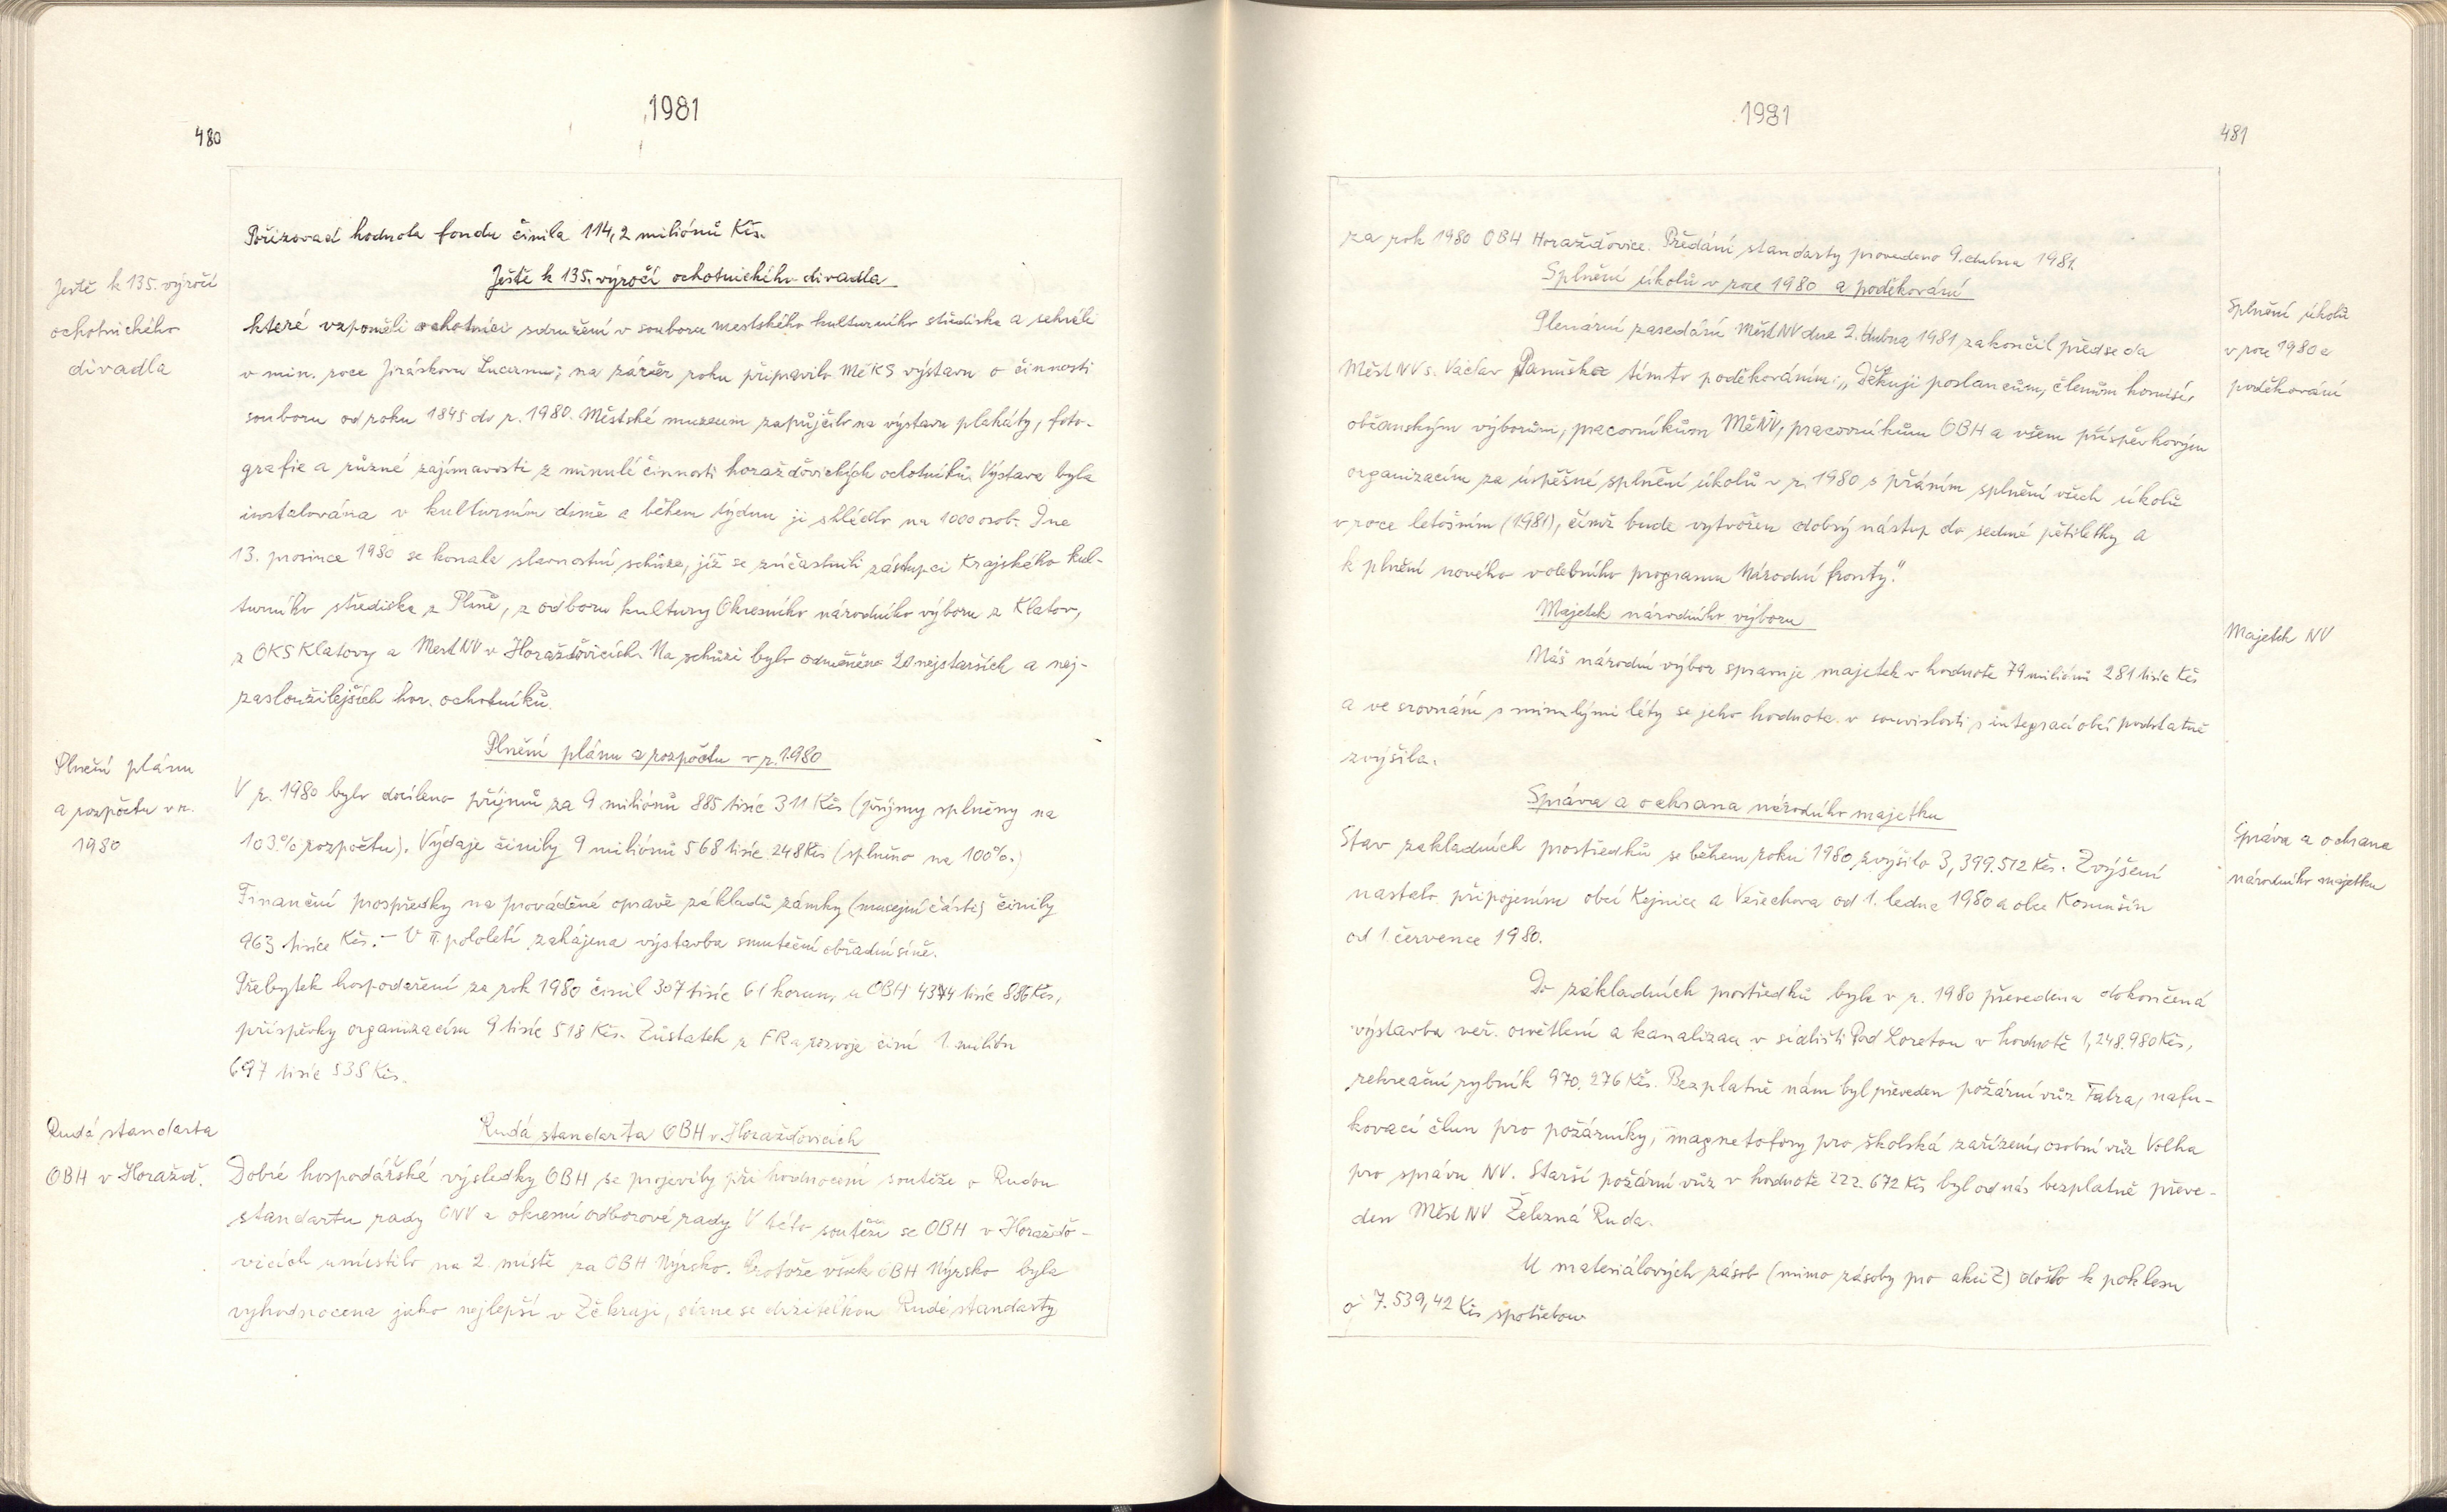 1981
480
Pořizovací hodnota fondu činila 114,2 miliónů Kčs.
Ještě k 135. výročí
ochotnického
divadla
Ještě k 135. výročí ochotnického divadla
které vzpoměli ochotníci sdružení v souboru mestského kulturního střediska a sehráli
v min. roce Jiráskovu Lucernu; na závěr roku připravilo MěKS výstavu o činnosti
souboru od roku 1845 do r. 1980. Městské muzeum zapůjčilo na výstavu plakáty, foto-
grafie a různé zajímavosti z minulé činnosti horažďovických ochotníků. Výstava byla
instalována v kulturním domě a během týdnu ji shlédlo na 1000 osob. Dne
13. prosince 1980 se konala slavnostní schůze, jíž se zúčastnili zástupci Krajského kul-
turního střediska z Plzně, z odboru kultury Okresního národního výboru z Klatov,
z OKS Klatovy a MestNV v Horažďovicích. Na schůzi bylo odměněno 20 nejstarších a nej-
zasloužilejších hor. ochotníků.
Plnění plánu
a rozpočtu v r.
1980
Plnění plánu a rozpočtu v r. 1980
V r. 1980 bylo docíleno příjmů za 9 miliónů 885 tisíc 311 Kčs (příjmy splněny na
103% rozpočtu). Výdaje činily 9 miliónů 568 tisíc 248 Kčs (splněno na 100%.)
Finanční prospředky na prováděné opravě základů zámky (muzejní části) činily
963 tisíce Kčs. – V II. pololetí zahájena výstavba smuteční obřadní síně.
Přebytek hospodaření za rok 1980 činil 307 tisíc 61 korun, u OBH tisíc 886 Kčs,
příspěvky organizacím 9 tisíc 518 Kčs. Zůstatek z FR a rozvoje činí 1 milión
697 tisíc 538 Kčs.
Rudá standarta
OBH v Horažď.
Rudá standarta OBH v Horažďovicích
Dobré hospodářské výsledky OBH se projevily při hodnocení soutěže o Rudou
standartu rady ONV a okresní odborové rady. V této soutěži se OBH v Horažďo-
vicích umístilo na 2. místě za OBH Nýrsko. Protože však OBH Nýrsko byla
vyhodnocena jako nejlepší v Zč kraji, stane se držitelkou Rudé standarty
1981
481
za rok 1980 OBH Horažďovice. Předání standarty provedeno 9. dubna 1981.
Splnění úkolů v roce 1980 a poděkování
Splnění úkolů
v roce 1980 a
poděkování
Plenární zasedání MěstNV dne 2. dubna 1981 zakončil předseda
MěstNV s. Václav Panuška tímto poděkováním: „Děkuji poslancům, členům komisí,
občanským výborům, pracovníkům MěNV, pracovníkům OBH a všem příspěvkovým
organizacím za úspěšné splnění úkolů v r. 1980 s přáním splnění všech úkolů
v roce letošním (1981), čímž bude vytvořen dobrý nástup do sedmé pětiletky a
k plnění nového volebního programu Národní fronty."
Majetek národního výboru
Majetek NV
Náš národní výbor spravuje majetek v hodnotě 79 miliónů 281 tisíc Kčs
a ve srovnání s minulými léty se jeho hodnota v souvislosti s integrací obcí podstatně
zvýšila.
Správa a ochrana národního majetku
Správa a ochrana
národního majetku
Stav zakladních prostředků se během roku 1980 zvýšilo 3,399.512 Kčs. Zvýšení
nastalo připojením obcí Kejnice a Veřechova od 1. ledna 1980 a obce Komušín
od 1. července 1980.
Do základních prostředků byla v r. 1980 převedena dokončená
výstavba veř. osvětlení a kanalizace v sídlišti Pod Loretou v hodnotě 1,248.980 Kčs,
rekreační rybník 970.276 Kčs. Bezplatně nám byl převeden požární vůz Tatra, nafu-
kovací člun pro požárníky, magnetofony pro školská zařízení, osobní vůz Volha
pro správu NV. Starší požární vůz v hodnotě 222.672 Kčs byl od nás bezplatně převe-
den Měst NV Železná Ruda.
U materiálových zásob (mimo zásoby pro akci Z) došlo k poklesu
o 7.539,42 Kčs spotřebou